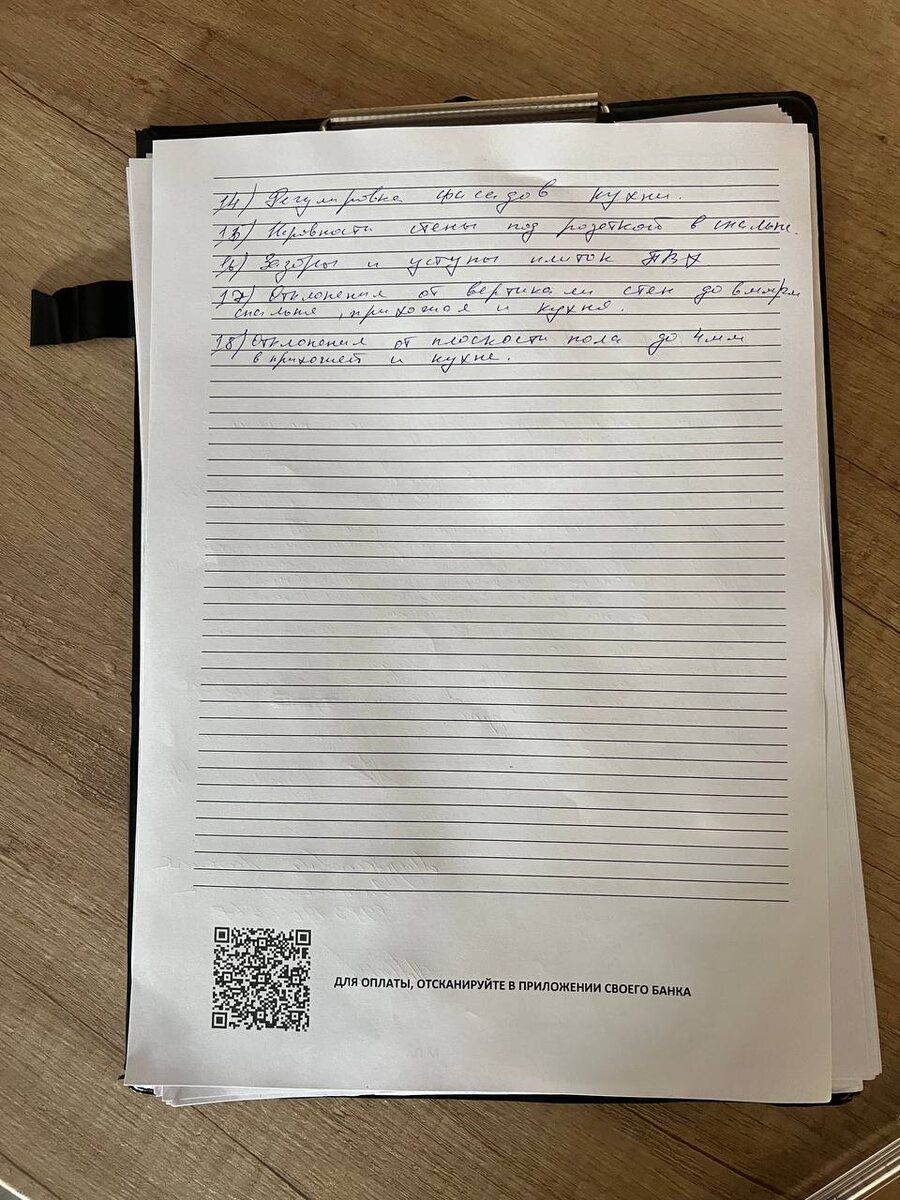 14) Регулировка фасадов кухни.
15) Неровности стены под розеткой в спальне.
16) Зазоры и уступы плиток ПВХ
17) Отклонения от вертикали стен до
спальня, прихожая и кухня.
18) Отклонения от плоскости пола до 4мм
в прихожей и кухне.
ДЛЯ ОПЛАТЫ, ОТСКАНИРУЙТЕ В ПРИЛОЖЕНИИ СВОЕГО БАНКА